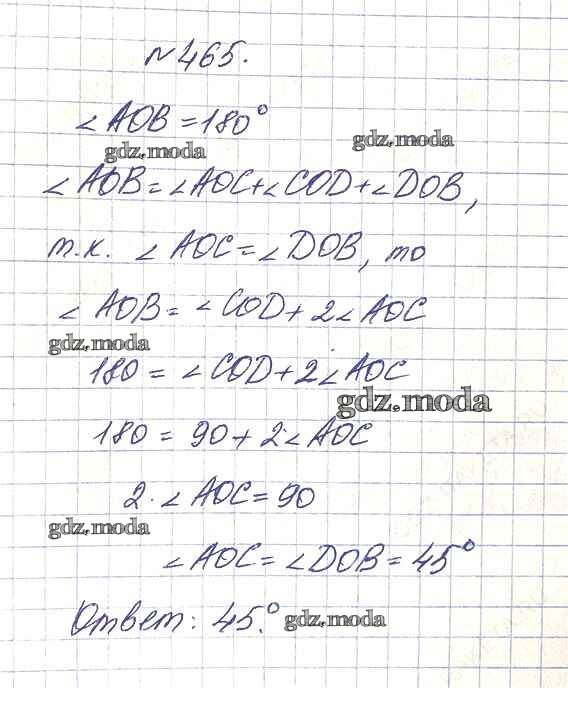 №465.
∠AOB=180°
gdz.moda
gdz.moda
∠AOB=∠AOC+∠COD+∠DOB,
т.к. ∠AOC=∠DOB, то
∠AOB=∠COD+2∠AOC
gdz.moda
180=∠COD+2·∠AOC
gdz.moda
180=90+2·∠AOC
2·∠AOC=90
gdz.moda
∠AOC=∠DOB=45°
Ответ: 45.°
gdz.moda